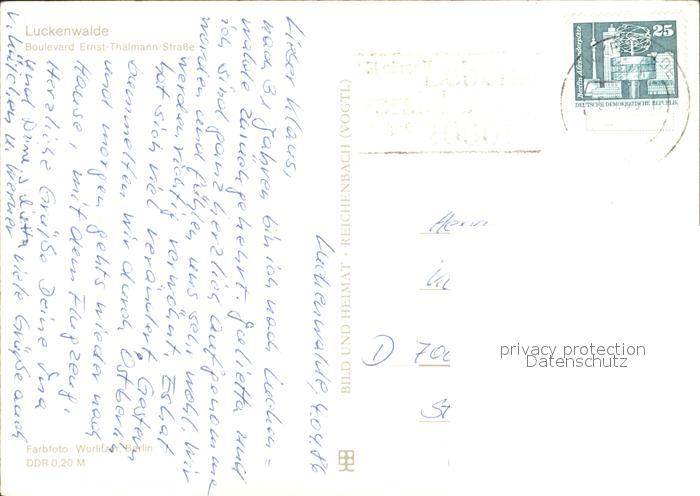 Luckenwalde
Boulevard Ernst-Thälmann-Straße
Luckenwalde, 4.04.86
Lieber Klaus,
nach 31 Jahren bin ich nach Lucken=
walde zurückgekehrt. Julietta und
ich sind ganz herzlich aufgenomme
worden und fühlen uns sehr wohl. Wir
werden richtig verwöhnt. Es hat
hat sich viel verändert. Gestern
bummelten wir durch Ostberlin
und morgen gehts wieder nach
Hause, mit dem Flugzeug.
Herzliche Grüße Deine Ina
und Julietta viele Grüße auch
v. Kätchen u. Werner
Farbfoto: Wurlitzer, Berlin
DDR 0,20 M
BILD UND HEIMAT · REICHENBACH (VOGTL)
Berlin, Alexanderplatz
25
DEUTSCHE DEMOKRATISCHE REPUBLIK
Herrn
D 700
St
privacy protection
Datenschutz